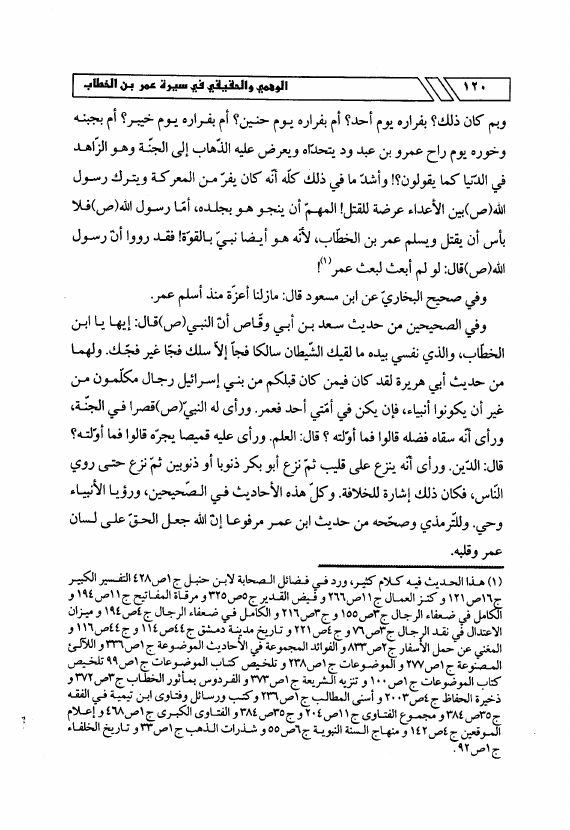 ١٢٠
الوهمي والحقيقي في سيرة عمر بن الخطاب
وبم كان ذلك؟ بفراره يوم أحد؟ أم بفراره يوم حنين؟ أم بفراره يوم خيبر؟ أم بجبنه
وخوره يوم راح عمرو بن عبد ود يتحدّاه ويعرض عليه الذّهاب إلى الجنّة وهو الزّاهد
في الدّنيا كما يقولون؟! وأشدّ ما في ذلك كلّه أنّه كان يفرّ من المعركة ويترك رسول
الله(ص)بين الأعداء عرضة للقتل! المهمّ أن ينجو هو بجلده، أمّا رسول الله(ص)فلا
بأس أن يقتل ويسلم عمر بن الخطّاب، لأنّه هو أيضا نبيّ بالقوّة! فقد رووا أنّ رسول
الله(ص)قال: لو لم أبعث لبعث عمر(١)!
وفي صحيح البخاريّ عن ابن مسعود قال: مازلنا أعزّة منذ أسلم عمر.
وفي الصحيحين من حديث سعد بن أبي وقّاص أنّ النبي(ص)قال: إيها يا ابن
الخطّاب، والذي نفسي بيده ما لقيك الشّيطان سالكا فجاً إلاّ سلك فجّا غير فجّك. ولهما
من حديث أبي هريرة لقد كان فيمن كان قبلكم من بني إسرائيل رجال مكلّمون من
غير أن يكونوا أنبياء، فإن يكن في أمّتي أحد فعمر. ورأى له النبيّ(ص)قصرا في الجنّة،
ورأى أنّه سقاه فضله قالوا فما أوّلته ؟ قال: العلم. ورأى عليه قميصا يجرّه قالوا فما أوّلته؟
قال: الدّين. ورأى أنّه ينزع على قليب ثمّ نزع أبو بكر ذنوبا أو ذنوبين ثمّ نزع حتى روي
النّاس، فكان ذلك إشارة للخلافة. وكلّ هذه الأحاديث في الصّحيحين، ورؤيا الأنبياء
وحي. وللتّرمذي وصحّحه من حديث ابن عمر مرفوعا إنّ الله جعل الحقّ على لسان
عمر وقلبه.
(١) هذا الحديث فيه كلام كثير، ورد في فضائل الصحابة لابن حنبل ج١ص٤٢٨ التفسير الكبير
ج١٦ص١٢١ و كنز العمال ج١١ص٢٦٦ و فيض القدير ج٥ص٣٢٥ و مرقاة المفاتيح ج١١ص١٩٤ و
الكامل في ضعفاء الرجال ج٣ص١٥٥ و ج٣ص٢١٦ و الكامل في ضعفاء الرجال ج٤ص١٩٤ و ميزان
الاعتدال في نقد الرجال ج٣ص٧٦ و ج٤ص٢٢١ و تاريخ مدينة دمشق ج٤٤ص١١٤ و ج٤٤ص١١٦ و
المغني عن حمل الأسفار ج٢ص٨٣٣ و الفوائد المجموعة في الأحاديث الموضوعة ج١ص٣٣٦ و اللآلئ
المصنوعة ج١ص٢٧٧ و الموضوعات ج١ص٢٣٨ و تلخيص كتاب الموضوعات ج١ص٩٩ تلخيص
كتاب الموضوعات ج١ص١٠٠ و تنزيه الشريعة ج١ص٣٧٣ و الفردوس بمأثور الخطاب ج٣ص٣٧٢ و
ذخيرة الحفاظ ج٤ص٢٠٠٣ و أسنى المطالب ج١ص٢٣٦ و كتب ورسائل وفتاوى ابن تيمية في الفقه
ج٣٥ص٣٨٤ و مجموع الفتاوى ج١١ص٢٠٤ و ج٣٥ص٣٨٤ و الفتاوى الكبرى ج١ص٤٦٨ و إعلام
الموقعين ج٤ص١٤٢ و منهاج السنة النبوية ج٦ص٥٥ و شذرات الذهب ج١ص٣٣ و تاريخ الخلفاء
ج١ص٩٢.